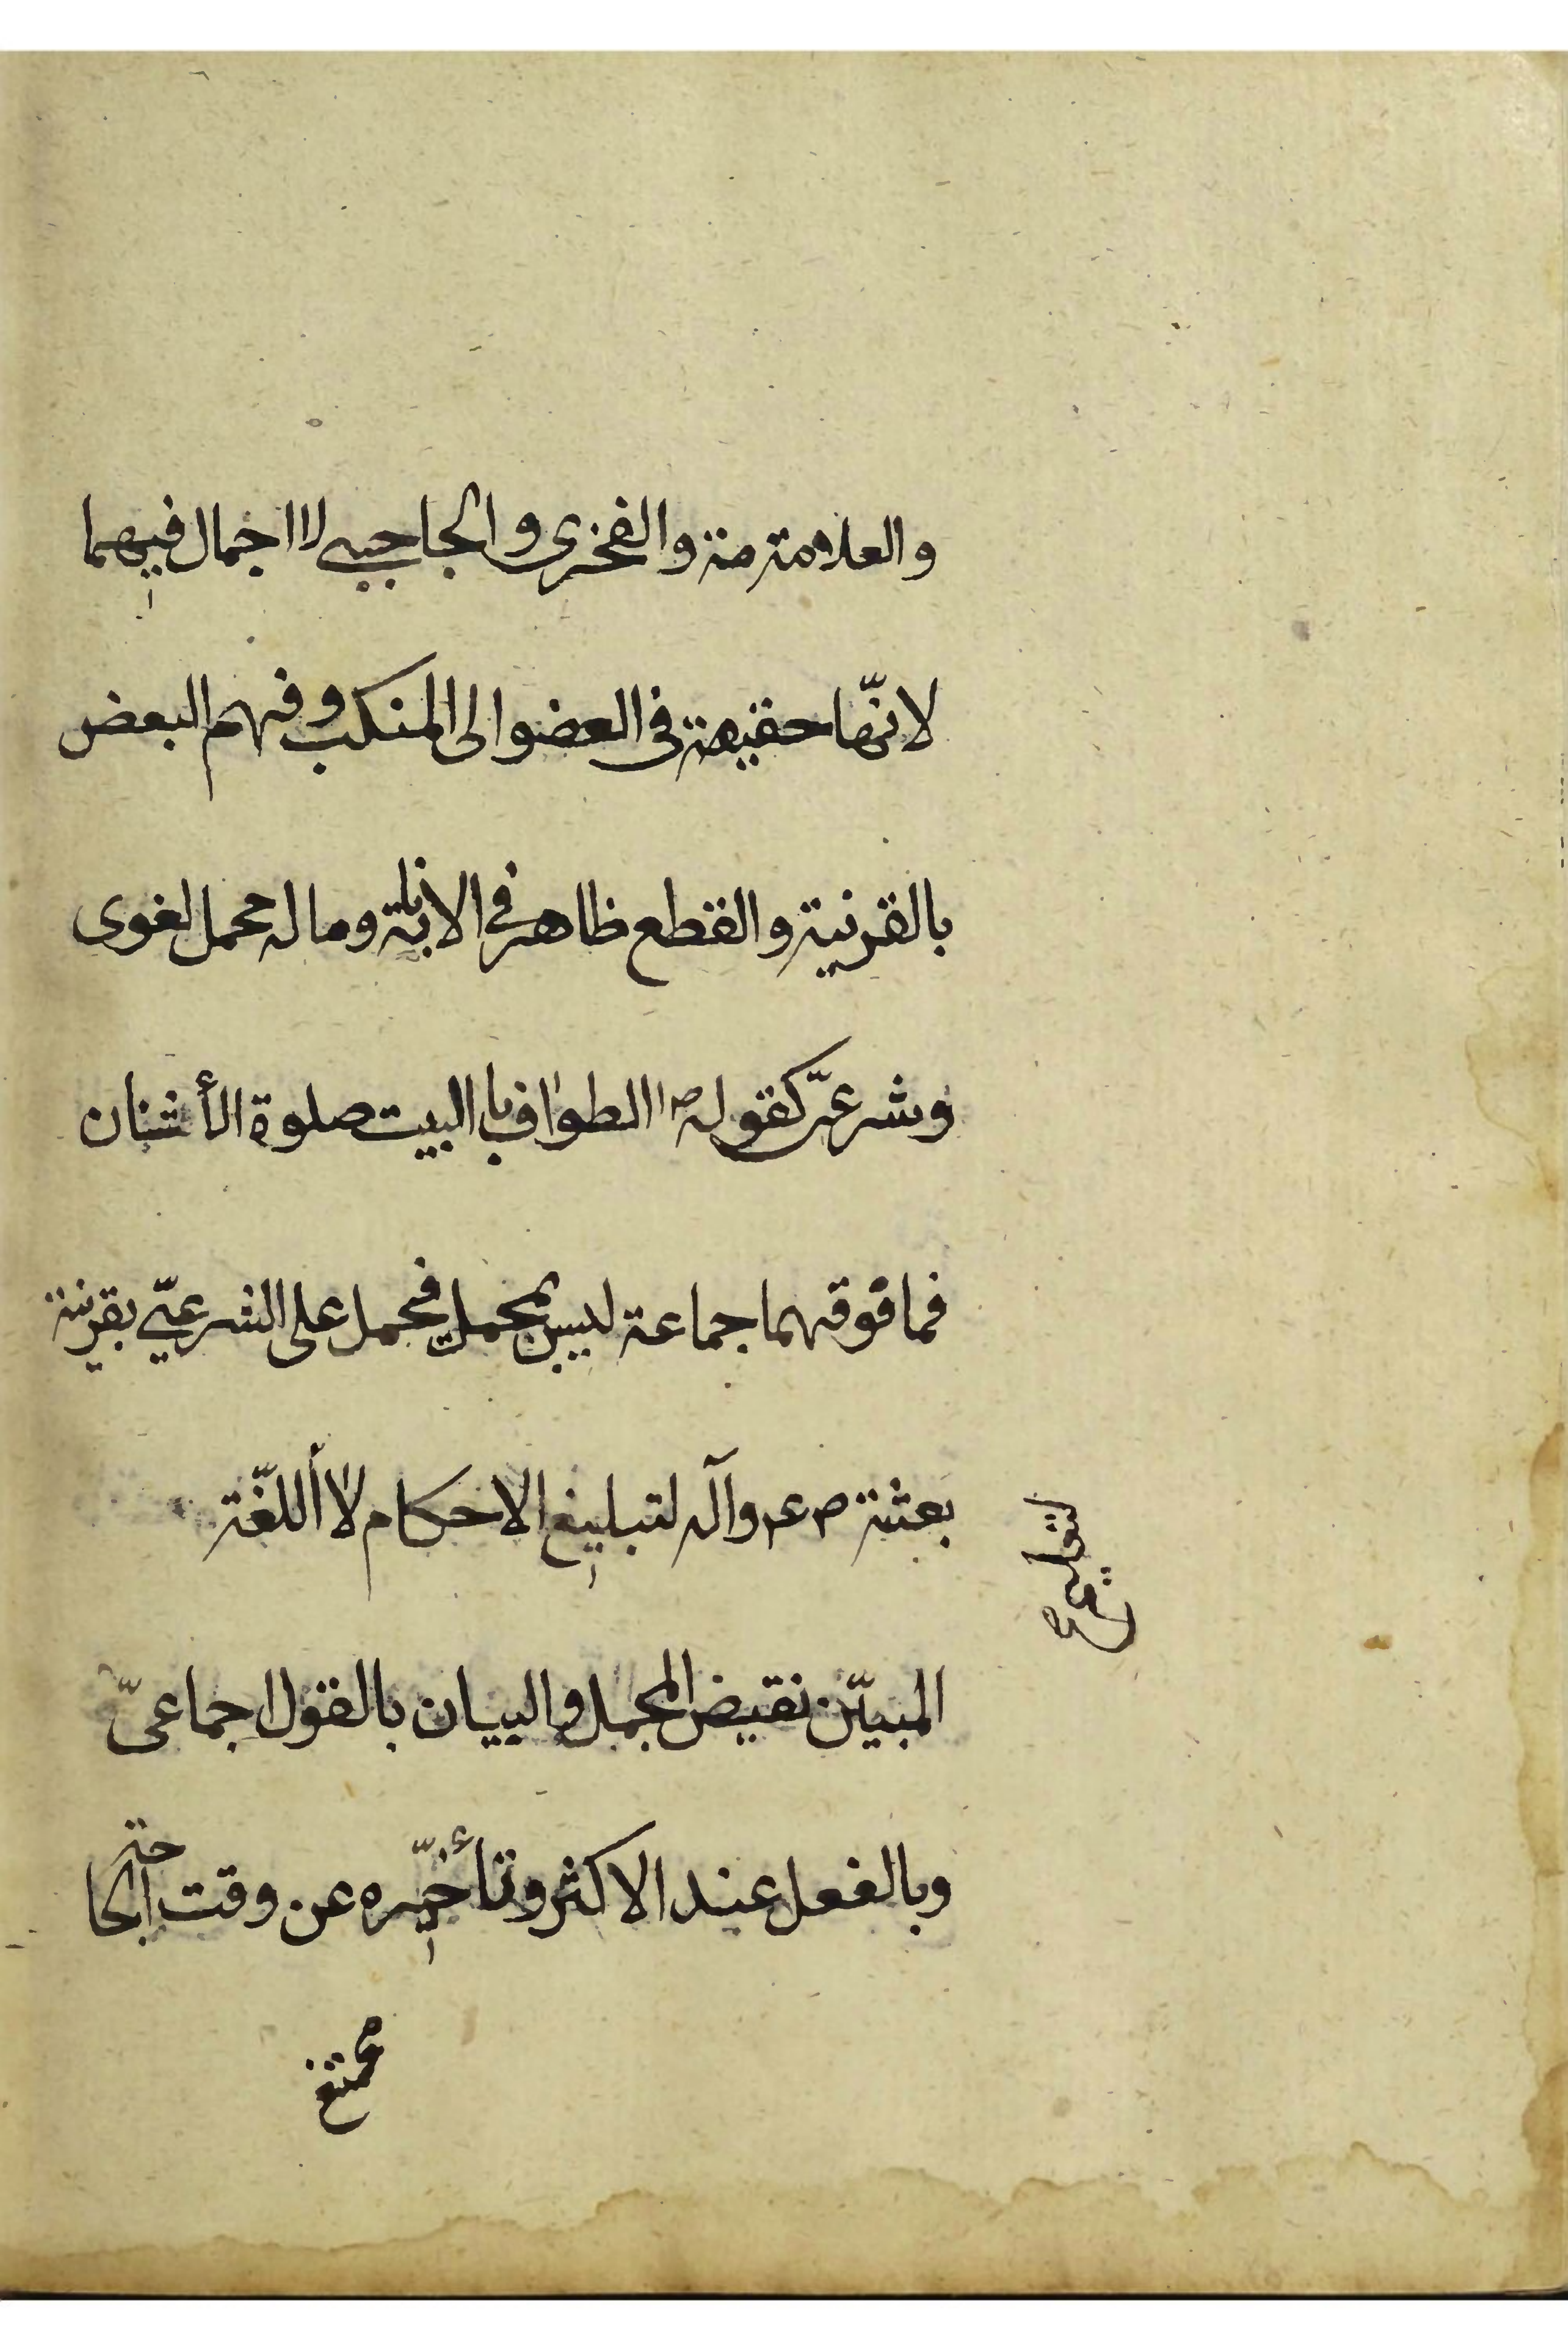 والعلامة مة والفخرى والحاجبي لا اجمال فيهما
لانّها حقيقة في العضو الى المنكب وفهم البعض
بالقرنية والقطع ظاهر في الابانة وماله محمل لغوى
وشرعىّ كقوله ص الطواف با البيت صلوة الأثنان
فما فوقهما جماعة ليس بمجمل فيحمل على الشرعيّ بقرنية
بعثة ص ع م وآله لتبليغ الاحكام لا اللغّة
المبيّن نقيض المجمل والبيان بالقول اجماعىّ
وبالفعل عند الاكثر وتأخيّره عن وقت الحاجة
ممتنع